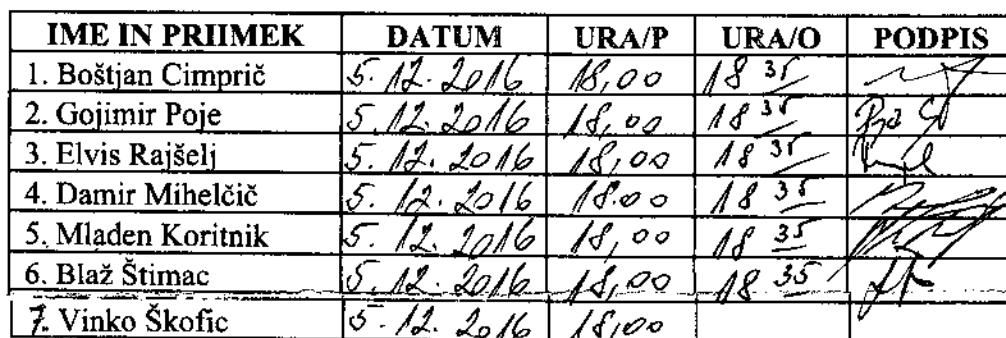 IME IN PRIIMEK DATUM URA/P URA/O PODPIS
1. Boštjan Cimprič 5. 12. 2016 18,00 18 35
2. Gojimir Poje 5. 12. 2016 18,00 18 35
3. Elvis Rajšelj 5. 12. 2016 18,00 18 35
4. Damir Mihelčič 5. 12. 2016 18.00 18 35
5. Mladen Koritnik 5. 12. 2016 18,00 18 35
6. Blaž Štimac 5. 12. 2016 18,00 18 35
7. Vinko Škofic 5. 12. 2016 18,00